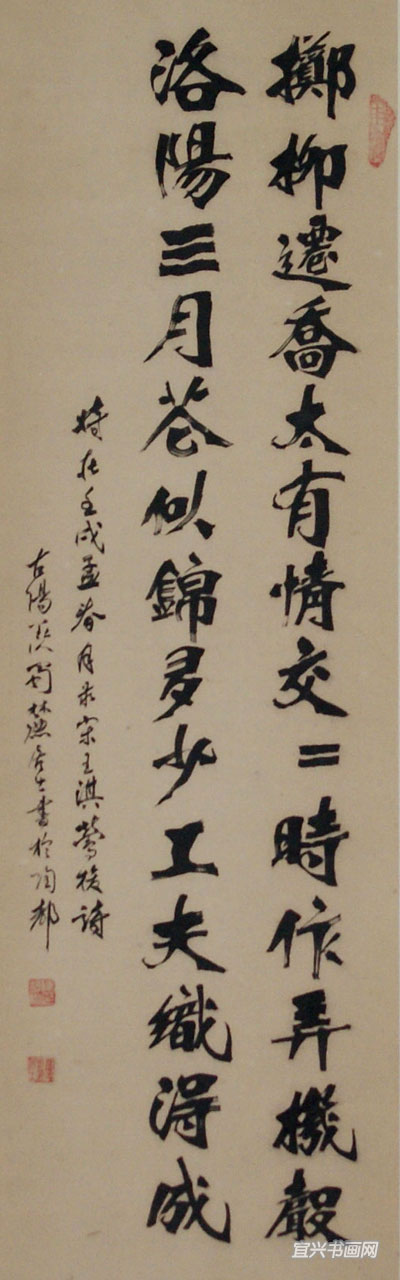 擲柳遷喬太有情交〻時作弄機聲
洛陽三月花似錦多少工夫織得成
時在壬戌孟春月宋王淇鶯梭詩
古陽羨蜀麓居士書於陶都
宜兴书画网